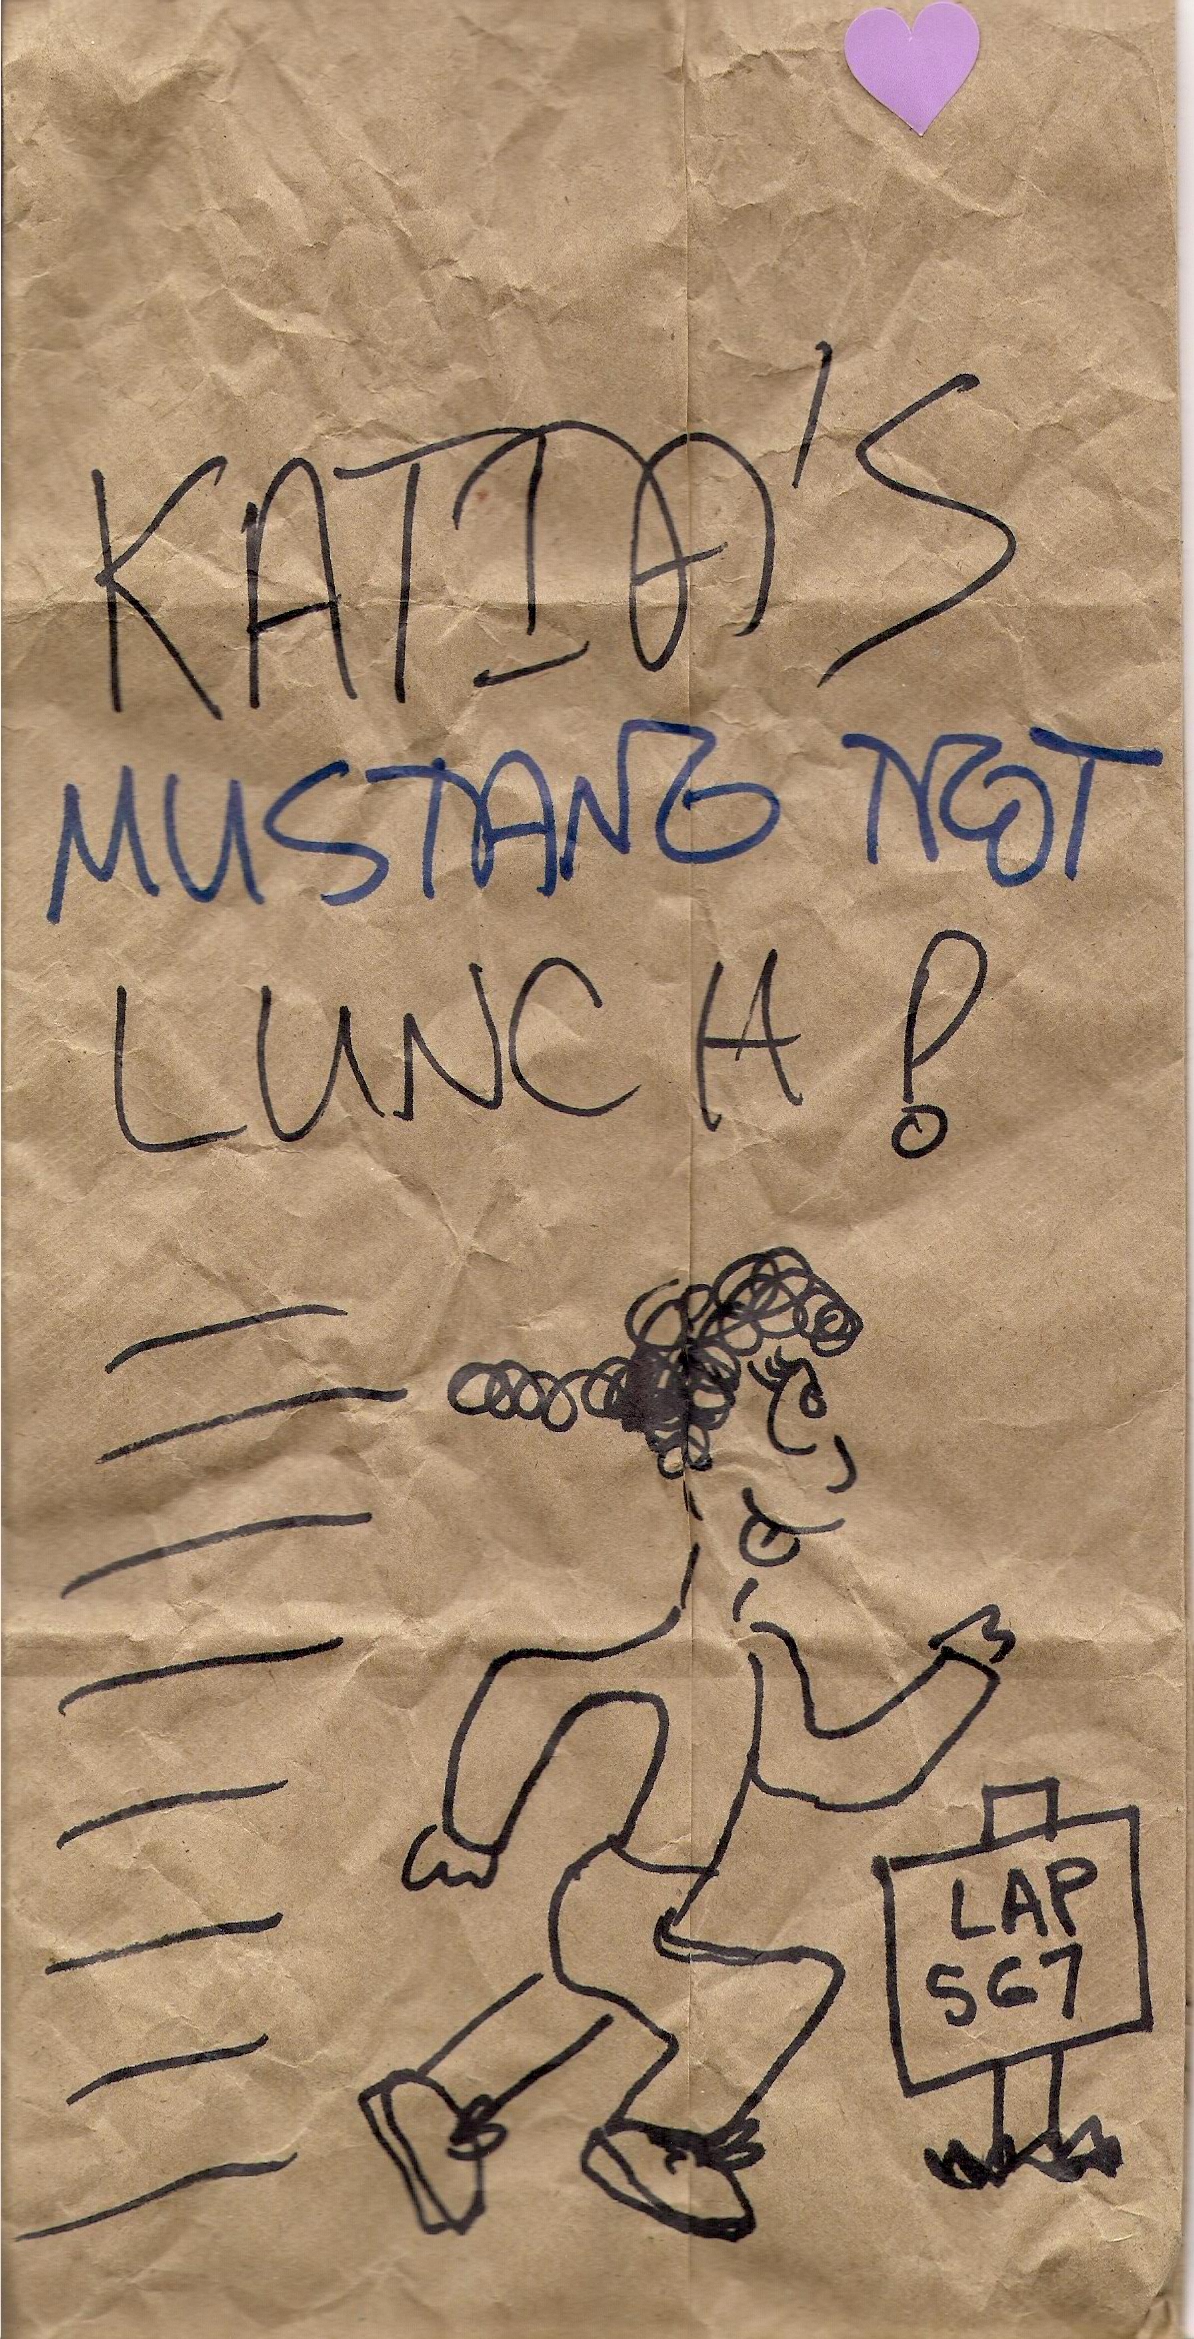 KATIA'S
MUSTANG TROT
LUNCH!
LAP
567